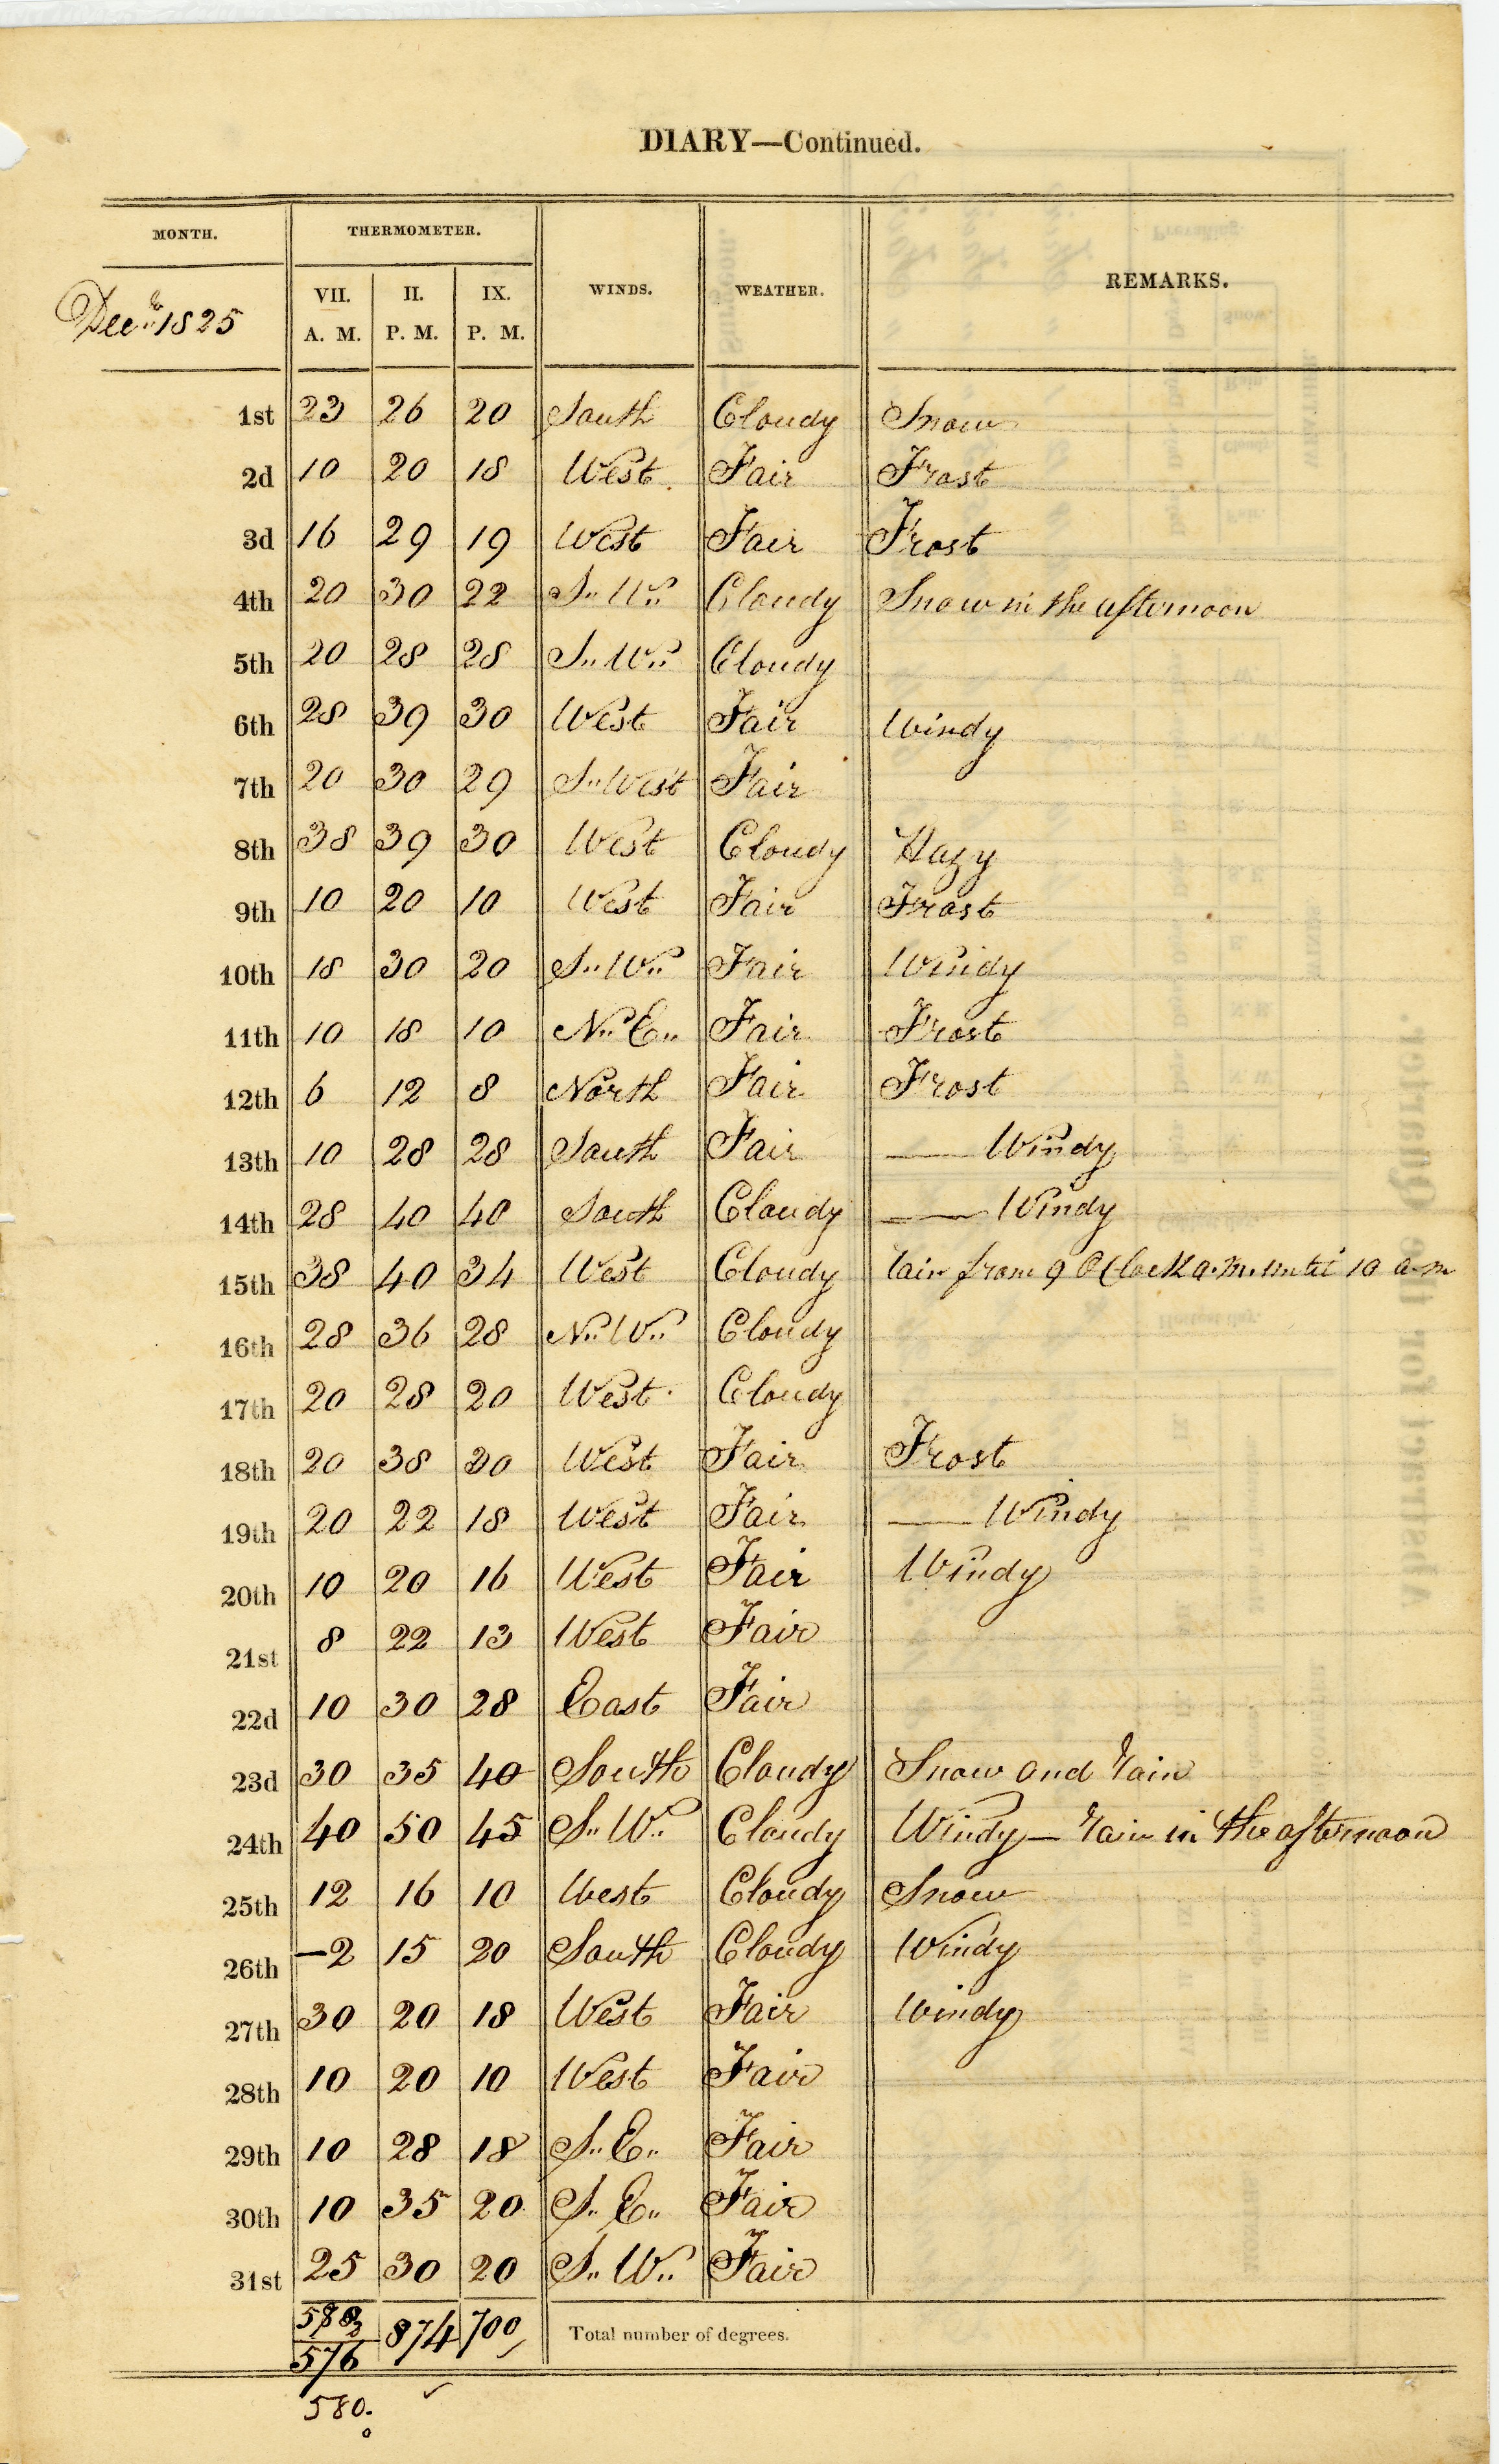 DIARY—Continued.
MONTH. THERMOMETER. WINDS. WEATHER. REMARKS.
Decr 1825 VII. A. M. II. P. M. IX. P. M.
1st 23 26 20 South Cloudy Snow
2d 10 20 18 West Fair Frost
3d 16 29 19 West Fair Frost
4th 20 30 22 S.. W.. Cloudy Snow in the afternoon
5th 20 28 28 S.. W.. Cloudy
6th 28 39 30 West Fair Windy
7th 20 30 29 S.. West Fair
8th 38 39 30 West Cloudy Hazy
9th 10 20 10 West Fair Frost
10th 18 30 20 S.. W.. Fair Windy
11th 10 18 10 N.. E.. Fair Frost
12th 6 12 8 North Fair Frost
13th 10 28 28 South Fair — Windy
14th 28 40 40 South Cloudy — Windy
15th 38 40 34 West Cloudy rain from 9 O Clock a.m. until 10 a.m
16th 28 36 28 N.. W.. Cloudy
17th 20 28 20 West Cloudy
18th 20 38 20 West Fair Frost
19th 20 22 18 West Fair — Windy
20th 10 20 16 West Fair Windy
21st 8 22 13 West Fair
22d 10 30 28 East Fair
23d 30 35 40 South Cloudy Snow and rain
24th 40 50 45 S.. W.. Cloudy Windy — rain in the afternoon
25th 12 16 10 West Cloudy Snow
26th —2 15 20 South Cloudy Windy
27th 30 20 18 West Fair Windy
28th 10 20 10 West Fair
29th 10 28 18 S.. E.. Fair
30th 10 35 20 S.. E.. Fair
31st 25 30 20 S.. W.. Fair
874 700 Total number of degrees.
576
580.